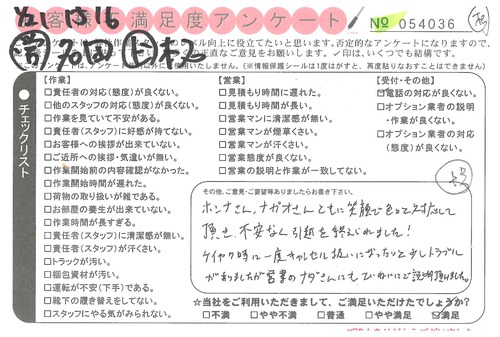 お客様不満足度アンケート
No 054036
上に役立てたいと思います。否定的なアンケートになりますので、
正直なご意見をお願いします。✓印は、いくつでも結構です。
いたしません。(※情報保護シールは1度はがすと、再度貼りなおすことはできません)
チェックリスト
【作業】
□責任者の対応(態度)が良くない。
□他のスタッフの対応(態度)が良くない。
□作業を見ていて不安がある。
□責任者(スタッフ)に好感が持てない。
□お客様への挨拶が出来ていない。
□ご近所への挨拶・気遣いが無い。
□作業開始前の内容確認がなかった。
□作業開始時間が遅れた。
□荷物の取り扱いが雑である。
□お部屋の養生が出来ていない。
□作業時間が長すぎる。
□責任者(スタッフ)に清潔感が無い。
□責任者(スタッフ)が汗くさい。
□トラックが汚い。
□梱包資材が汚い。
□運転が不安(下手)である。
□靴下の履き替えをしてない。
□スタッフにやる気がみられない。
【営業】
□見積もり時間に遅れた。
□見積もり時間が長い。
□営業マンに清潔感が無い。
□営業マンが煙草くさい。
□営業マンが汗くさい。
□営業態度が良くない。
□営業の説明と作業が一致してない。
【受付・その他】
□電話の対応が良くない。
□オプション業者の説明
・作業が良くない。
□オプション業者の対応
(態度)が良くない。
その他、ご意見・ご要望等ありましたらお書き下さい。
ホンナさん、ナガオさんともに笑顔で色々と対応して
頂き、不安なく引越を終えられました!
ケイヤク時に一度キャンセル扱いになったりと少しトラブル
がありましたが営業のナダさんにもていねいにご説明頂けました。
☆当社をご利用いただきまして、ご満足いただけたでしょうか?
□不満 □やや不満 □普通 □やや満足 ☑満足